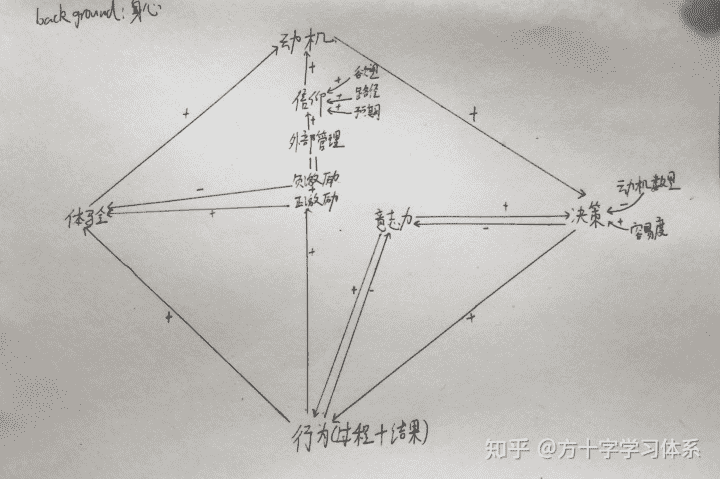 background: 身心
动机
+
欲望
+
+
信仰
+
路径
+
+
+
预期
+
外部管理
=
负激励
-
正激励
+
体验
意志力
+
-
决策
动机数量
-
+
容易度
+
+
-
+
+
行为(过程+结果)
知乎 @方十字学习体系